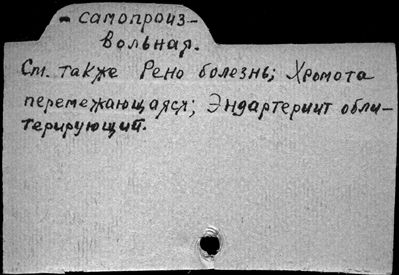 - самопроиз-
вольная.
См. также Рено болезнь; Хромота
перемежающаяся; Эндартериит обли-
терирующий.